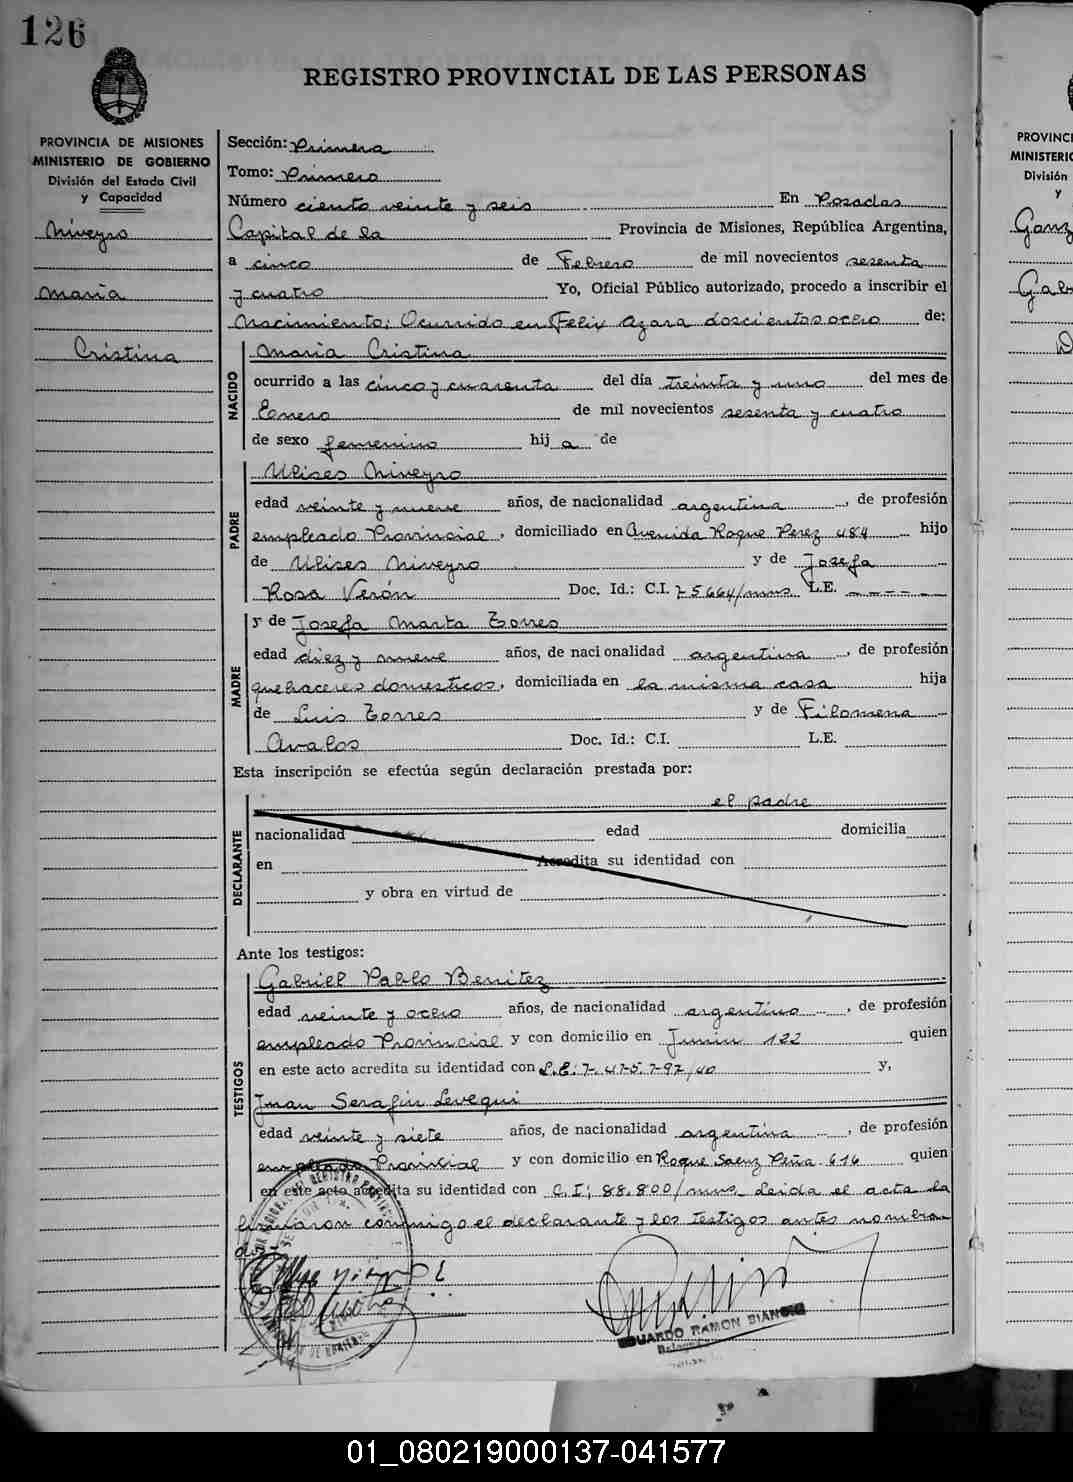 126
REGISTRO PROVINCIAL DE LAS PERSONAS
PROVINCIA DE MISIONES
MINISTERIO DE GOBIERNO
División del Estado Civil
y Capacidad
Niveyro
Maria
Cristina
Sección: Primera
Tomo: Primero
Número ciento veinte y seis En Posadas
Capital de la Provincia de Misiones, República Argentina,
a cinco de Febrero de mil novecientos sesenta
y cuatro Yo, Oficial Público autorizado, procedo a inscribir el
Nacimiento: Ocurrido en Felix Azara doscientos ocho de:
NACIDO
Maria Cristina
ocurrido a las cinco y cuarenta del día treinta y uno del mes de
Enero de mil novecientos sesenta y cuatro
de sexo femenino hij a de
PADRE
Ulises Niveyro
edad veinte y nueve años, de nacionalidad argentina, de profesión
empleado Provincial, domiciliado en Avenida Roque Perez 484 hijo
de Ulises Niveyro y de Josefa
Rosa Verón Doc. Id.: C.I. 75664/mns L.E. – – – – –
MADRE
y de Josefa Marta Torres
edad diez y nueve años, de nacionalidad argentina, de profesión
quehaceres domesticos, domiciliada en la misma casa hija
de Luis Torres y de Filomena
Avalos Doc. Id.: C.I. L.E.
Esta inscripción se efectúa según declaración prestada por:
DECLARANTE
el padre
nacionalidad edad domicilia
en Acredita su identidad con
y obra en virtud de
Ante los testigos:
TESTIGOS
Gabriel Pablo Benitez
edad veinte y ocho años, de nacionalidad argentino, de profesión
empleado Provincial y con domicilio en Junin 122 quien
en este acto acredita su identidad con L.E: 7.475.797/40 y,
Juan Serafin Levequi
edad veinte y siete años, de nacionalidad argentina, de profesión
empleado Provincial y con domicilio en Roque Saenz Peña 616 quien
en este acto acredita su identidad con C.I: 88.800/mns. Leida el acta la
firmaron conmigo el declarante y los testigos antes nombra
dos
EDUARDO RAMON BIANCHI
PROVINCI
MINISTERIO
División
y
01_080219000137-041577